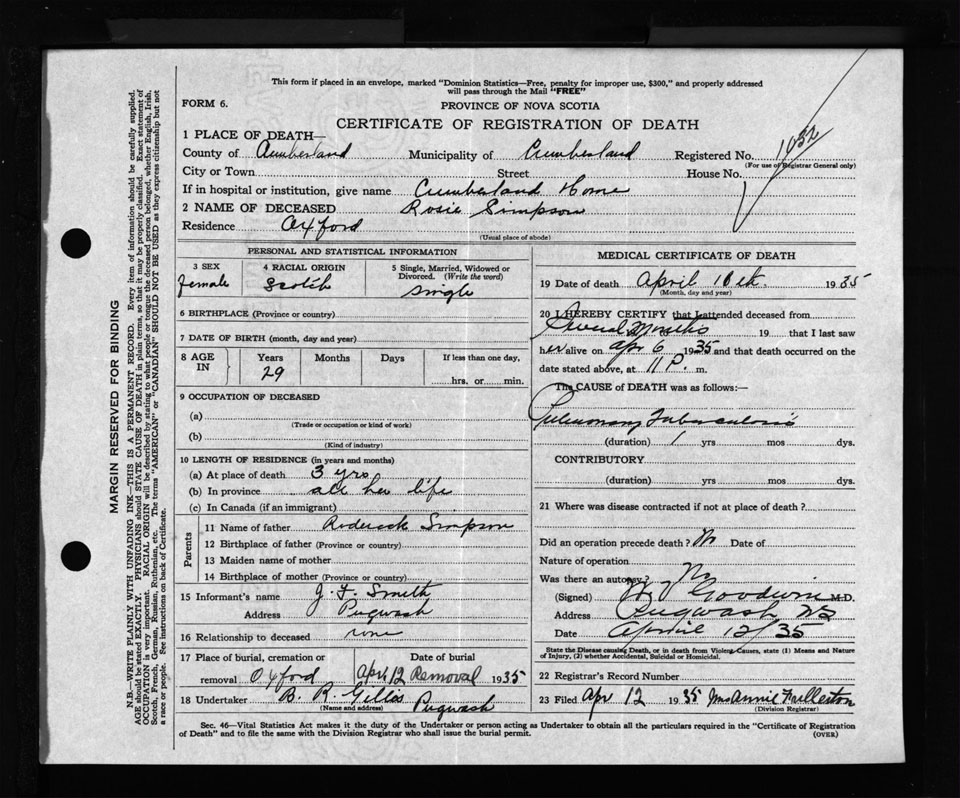 This form if placed in an envelope, marked "Dominion Statistics—Free, penalty for improper use, $300," and properly addressed
will pass through the Mail "FREE"
FORM 6.
PROVINCE OF NOVA SCOTIA
CERTIFICATE OF REGISTRATION OF DEATH
1 PLACE OF DEATH—
County of Cumberland Municipality of Cumberland Registered No. 1432
(For use of Registrar General only)
City or Town Street House No.
If in hospital or institution, give name Cumberland Home
2 NAME OF DECEASED Rosie Simpson
Residence Oxford
(Usual place of abode)
PERSONAL AND STATISTICAL INFORMATION
3 SEX 4 RACIAL ORIGIN 5 Single, Married, Widowed or
Divorced. (Write the word)
female Scotch Single
6 BIRTHPLACE (Province or country)
7 DATE OF BIRTH (month, day and year)
8 AGE IN Years Months Days If less than one day,
29 hrs. or min.
9 OCCUPATION OF DECEASED
(a)
(Trade or occupation or kind of work)
(b)
(Kind of industry)
10 LENGTH OF RESIDENCE (in years and months)
(a) At place of death 3 yrs
(b) In province all her life
(c) In Canada (if an immigrant)
Parents
11 Name of father Roderick Simpson
12 Birthplace of father (Province or country)
13 Maiden name of mother
14 Birthplace of mother (Province or country)
15 Informant's name J. F. Smith
Address Pugwash
16 Relationship to deceased none
17 Place of burial, cremation or Date of burial
removal Oxford Apr 12 Removal 1935
18 Undertaker B. R. Gillis
(Name and address) Pugwash
MEDICAL CERTIFICATE OF DEATH
19 Date of death April 10th 1935
(Month, day and year)
20 I HEREBY CERTIFY that I attended deceased from
Several Months 19 that I last saw
her alive on Apr 6 1935 and that death occurred on the
date stated above, at 11 P. m.
The CAUSE of DEATH was as follows:—
Pulmonary Tuberculosis
(duration) 1 yrs mos dys.
CONTRIBUTORY
(duration) yrs mos dys.
21 Where was disease contracted if not at place of death?
Did an operation precede death? No Date of
Nature of operation
Was there an autopsy? No
(Signed) Goodwin M.D.
Address Pugwash NS
Date April 12/35
State the Disease causing Death, or in death from Violent Causes, state (1) Means and Nature
of Injury, (2) whether Accidental, Suicidal or Homicidal.
22 Registrar's Record Number
23 Filed Apr 12 1935 Mrs Annie Fullerton
(Division Registrar)
Sec. 46—Vital Statistics Act makes it the duty of the Undertaker or person acting as Undertaker to obtain all the particulars required in the "Certificate of Registration
of Death" and to file the same with the Division Registrar who shall issue the burial permit.
(OVER)
MARGIN RESERVED FOR BINDING
N.B.—WRITE PLAINLY WITH UNFADING INK—THIS IS A PERMANENT RECORD. Every item of information should be carefully supplied.
AGE should be stated EXACTLY. PHYSICIANS should STATE CAUSE OF DEATH in plain terms, so that it may be properly classified. Exact statement of
OCCUPATION is very important. RACIAL ORIGIN will be described by stating to what people or tongue the deceased person belonged, whether English, Irish,
Scotch, French, German, Russian, Ruthenian, etc. The terms "AMERICAN" or "CANADIAN" SHOULD NOT BE USED as they express citizenship but not
a race or people. See instructions on back of Certificate.